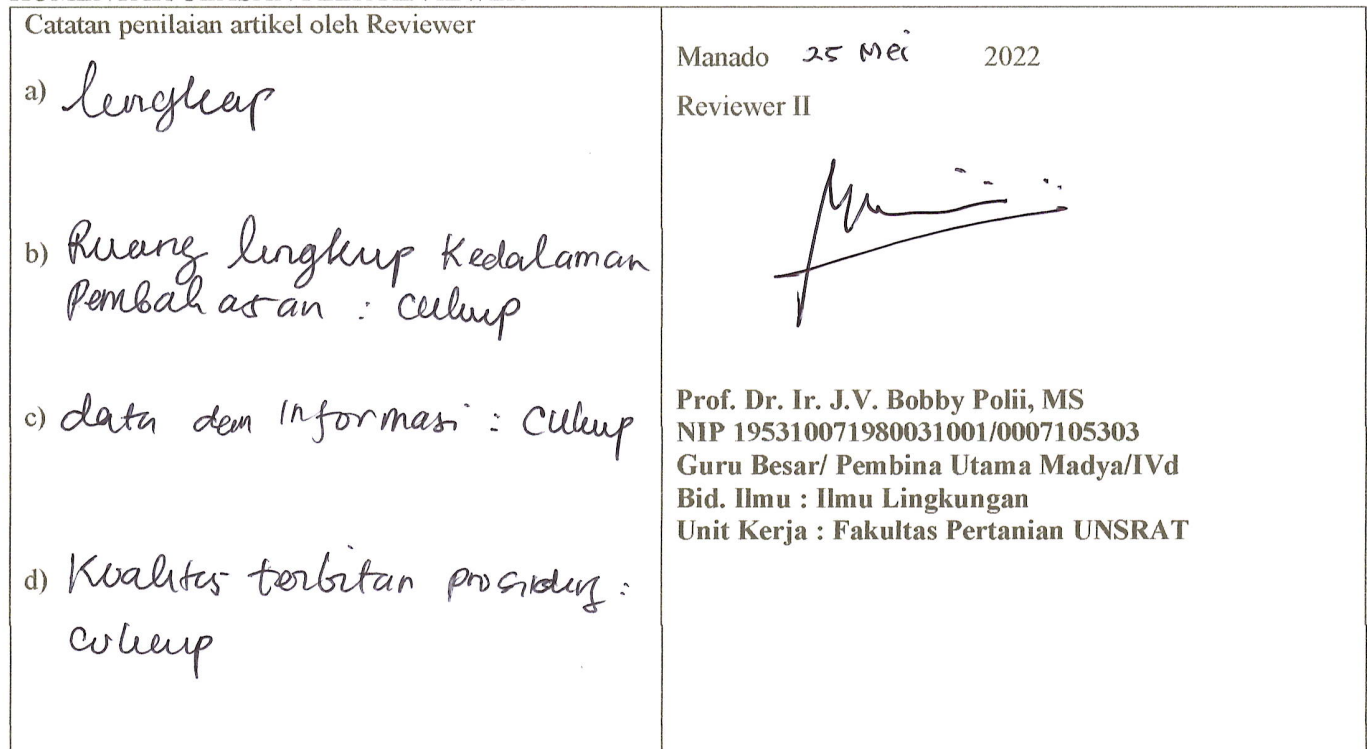 Catatan penilaian artikel oleh Reviewer
a) lengkap
b) Ruang lingkup Kedalaman
Pembahasan : cukup
c) data dan Informasi : cukup
d) Kualitas terbitan prosiding :
cukup
Manado 25 Mei 2022
Reviewer II
Prof. Dr. Ir. J.V. Bobby Polii, MS
NIP 195310071980031001/0007105303
Guru Besar/ Pembina Utama Madya/IVd
Bid. Ilmu : Ilmu Lingkungan
Unit Kerja : Fakultas Pertanian UNSRAT